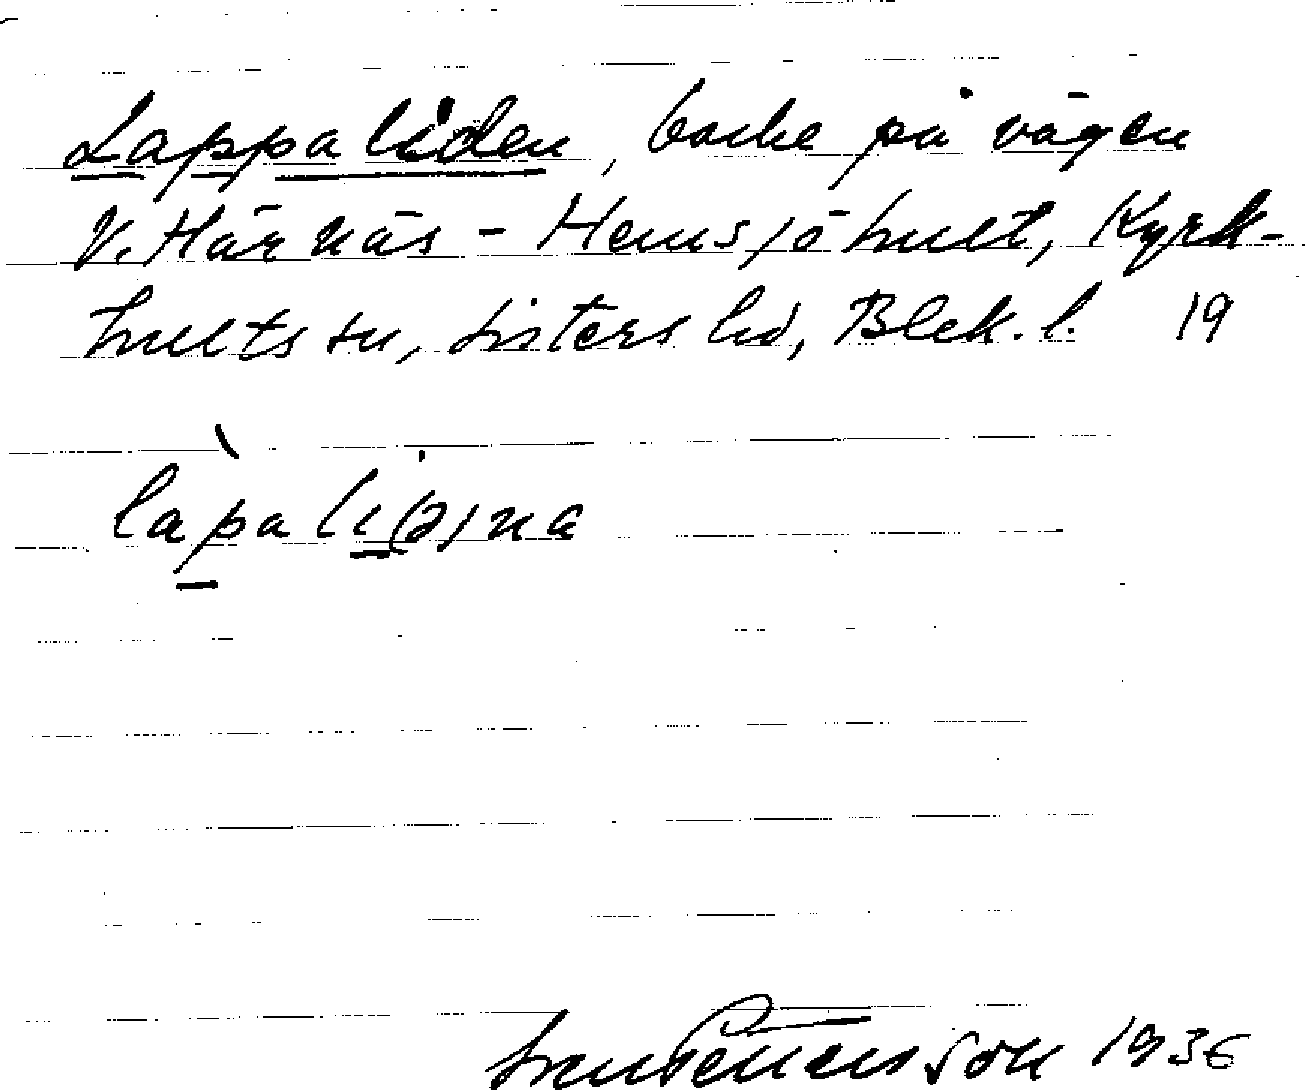 Lappaliden, backe på vägen
V. Härnäs - Hemsjöhult, Kyrk-
hults sn, Listers hd, Blek. l. 19
làpali(ə)na
1936